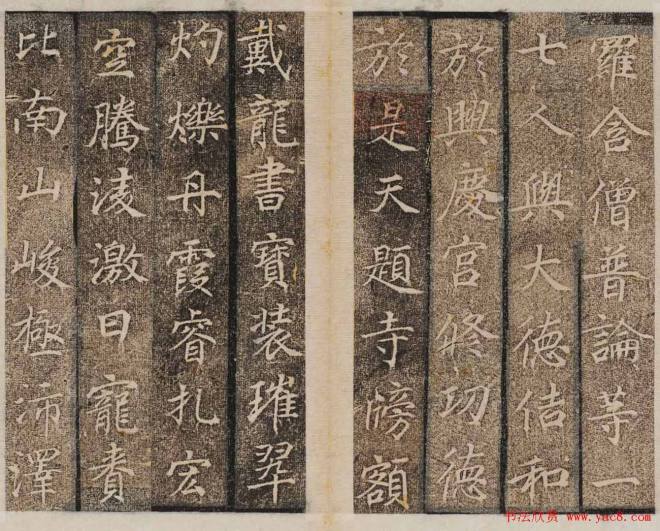 羅含僧普論等一
七人與大德佶和
於興慶宮修功德
於是天題寺牓額
戴龍書寶裝璀翠
灼爍丹霞睿扎宏
空騰淩激曰寵賚
比南山峻極沛澤
书法欣赏 www.yac8.com